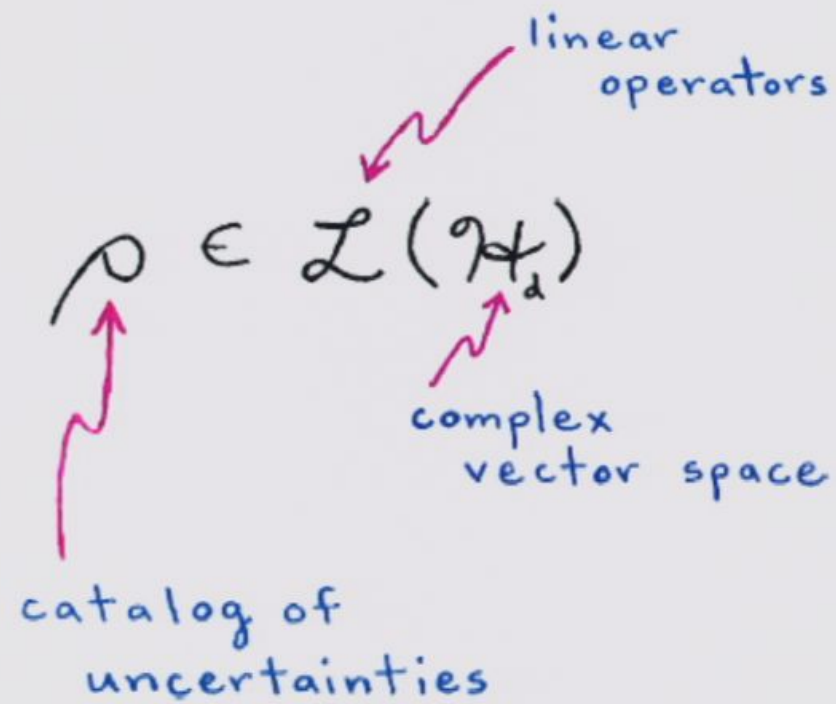 linear
operators
ρ ∈ ℒ(ℋ_d)
complex
vector space
catalog of
uncertainties